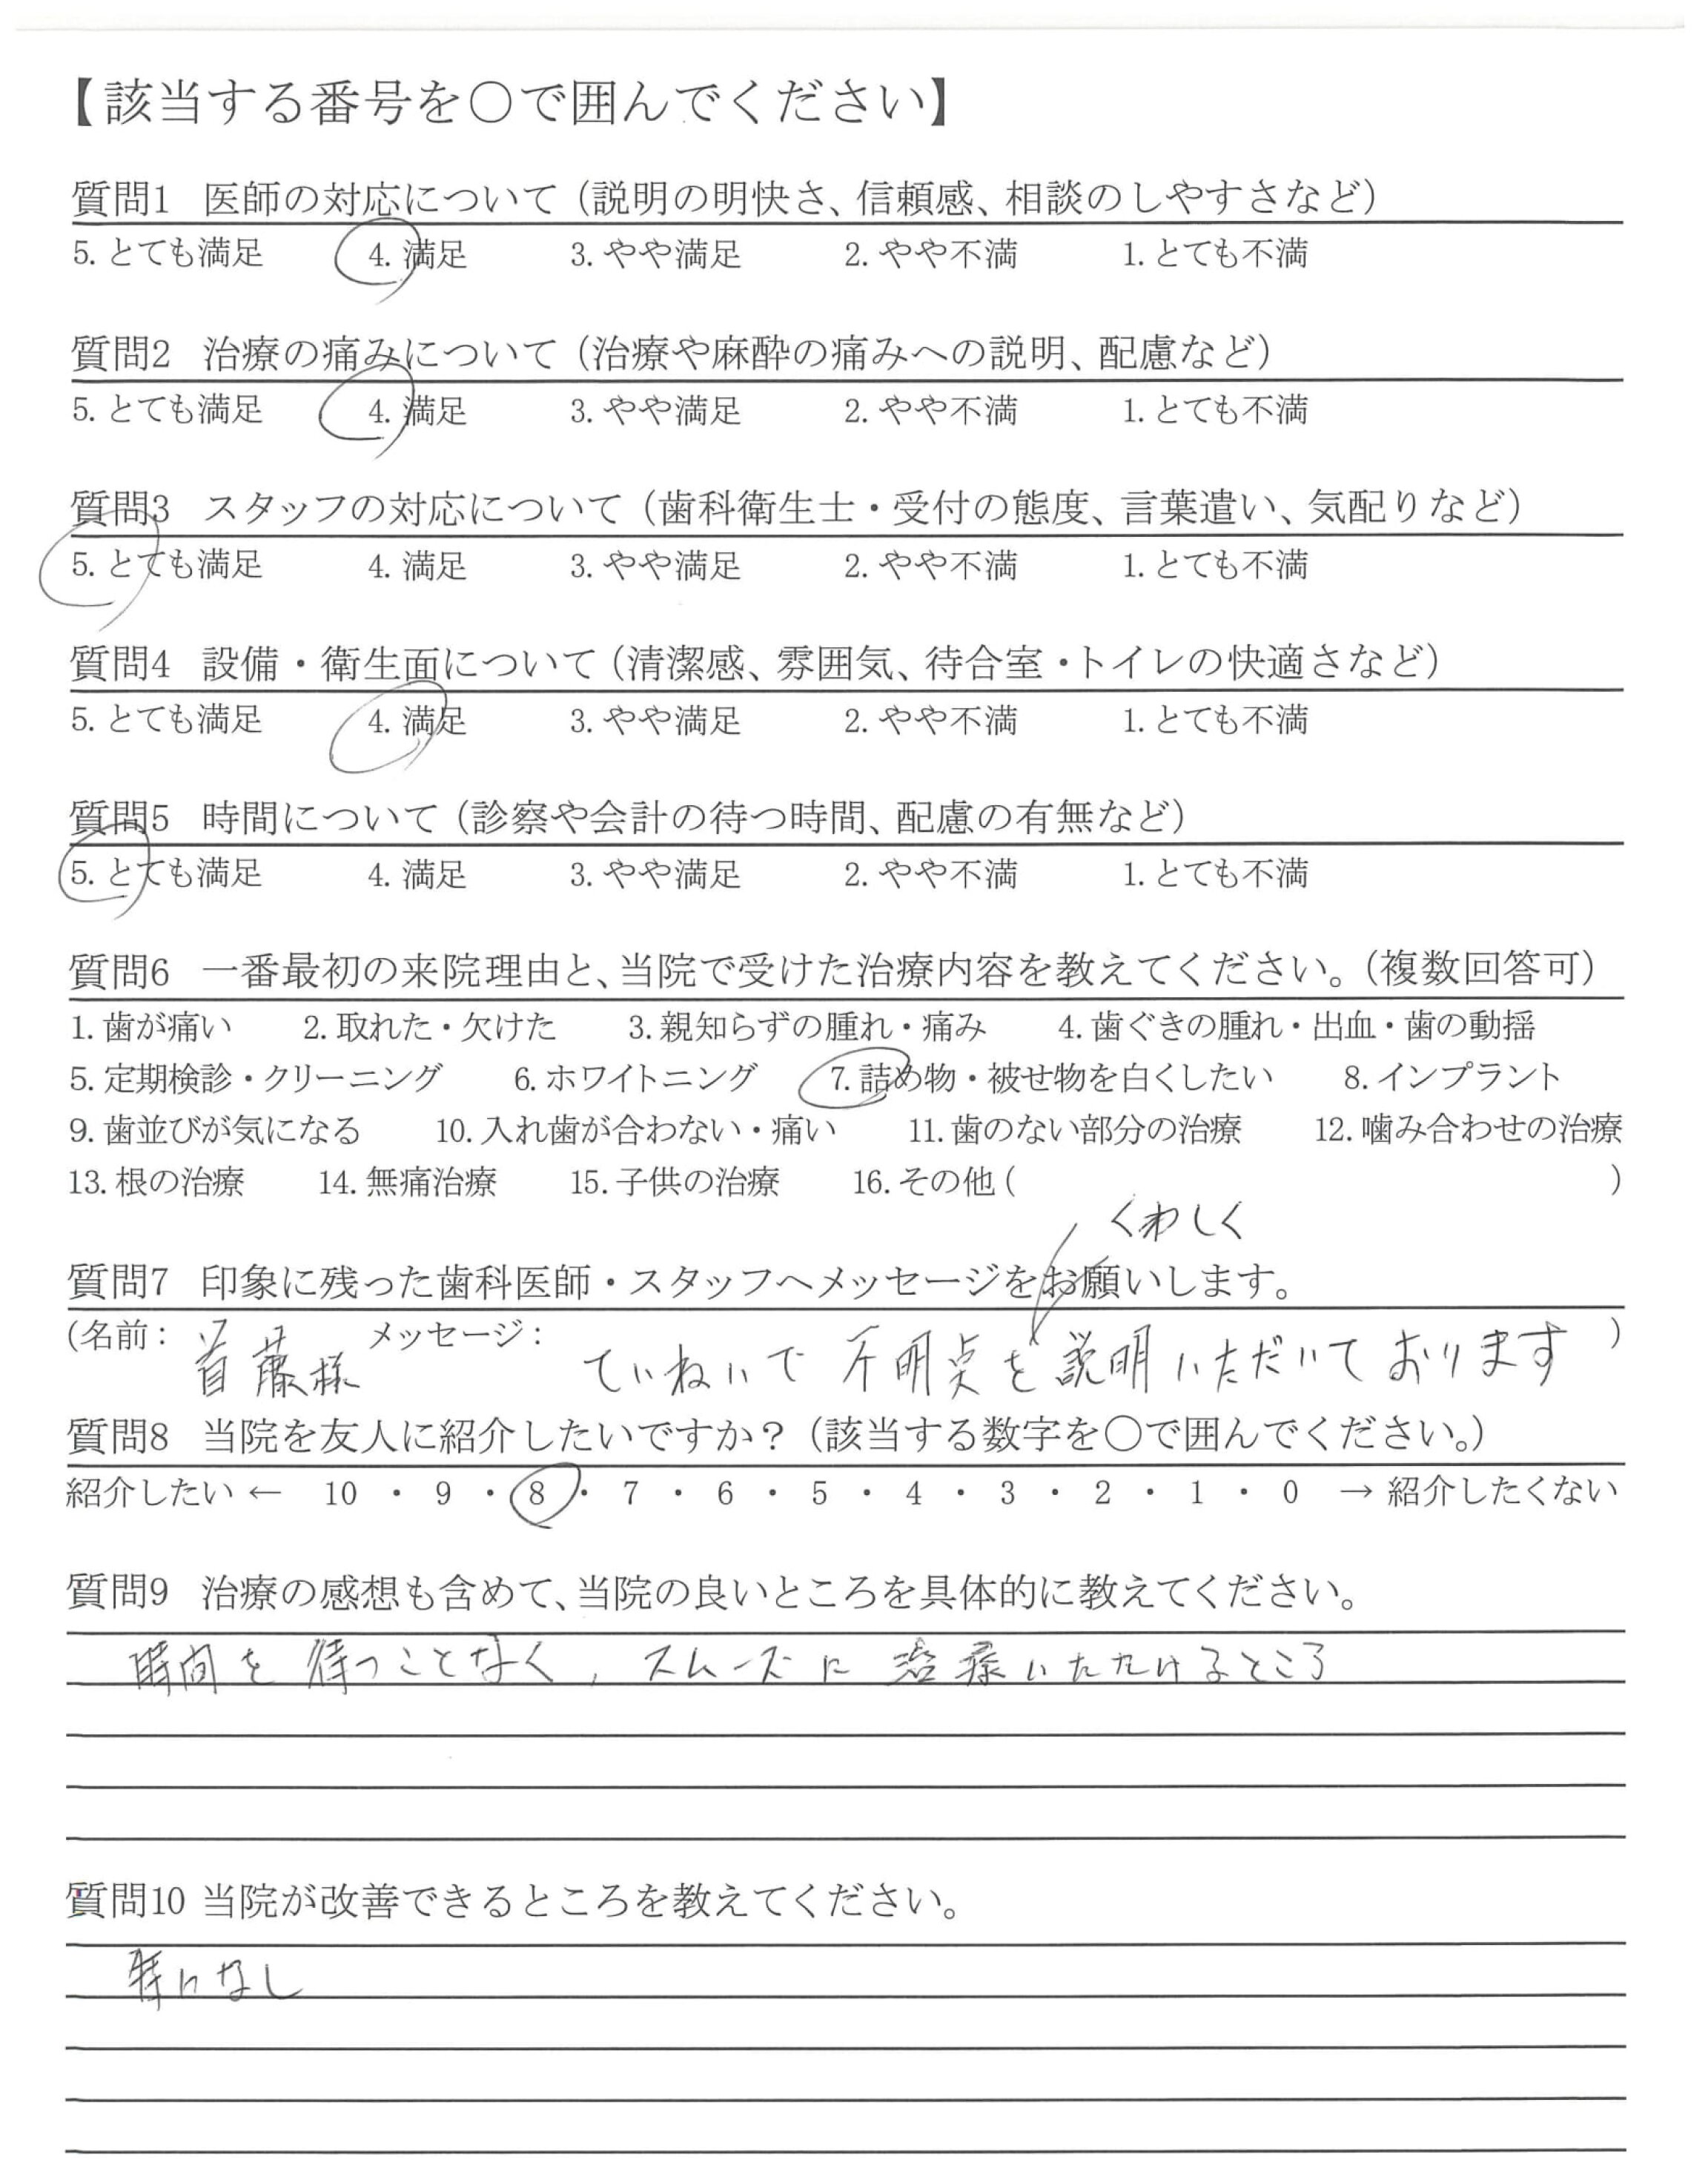 【該当する番号を○で囲んでください】
質問1 医師の対応について（説明の明快さ、信頼感、相談のしやすさなど）
5. とても満足 4. 満足 3. やや満足 2. やや不満 1. とても不満
質問2 治療の痛みについて（治療や麻酔の痛みへの説明、配慮など）
5. とても満足 4. 満足 3. やや満足 2. やや不満 1. とても不満
質問3 スタッフの対応について（歯科衛生士・受付の態度、言葉遣い、気配りなど）
5. とても満足 4. 満足 3. やや満足 2. やや不満 1. とても不満
質問4 設備・衛生面について（清潔感、雰囲気、待合室・トイレの快適さなど）
5. とても満足 4. 満足 3. やや満足 2. やや不満 1. とても不満
質問5 時間について（診察や会計の待つ時間、配慮の有無など）
5. とても満足 4. 満足 3. やや満足 2. やや不満 1. とても不満
質問6 一番最初の来院理由と、当院で受けた治療内容を教えてください。（複数回答可）
1. 歯が痛い 2. 取れた・欠けた 3. 親知らずの腫れ・痛み 4. 歯ぐきの腫れ・出血・歯の動揺
5. 定期検診・クリーニング 6. ホワイトニング 7. 詰め物・被せ物を白くしたい 8. インプラント
9. 歯並びが気になる 10. 入れ歯が合わない・痛い 11. 歯のない部分の治療 12. 噛み合わせの治療
13. 根の治療 14. 無痛治療 15. 子供の治療 16. その他（ ）
くわしく
質問7 印象に残った歯科医師・スタッフへメッセージをお願いします。
（名前： 首藤様 メッセージ： ていねいで 不明点を説明いただいております ）
質問8 当院を友人に紹介したいですか？（該当する数字を○で囲んでください。）
紹介したい ← 10 ・ 9 ・ 8 ・ 7 ・ 6 ・ 5 ・ 4 ・ 3 ・ 2 ・ 1 ・ 0 → 紹介したくない
質問9 治療の感想も含めて、当院の良いところを具体的に教えてください。
時間を待つことなく、スムーズに治療いただけるところ
質問10 当院が改善できるところを教えてください。
特になし